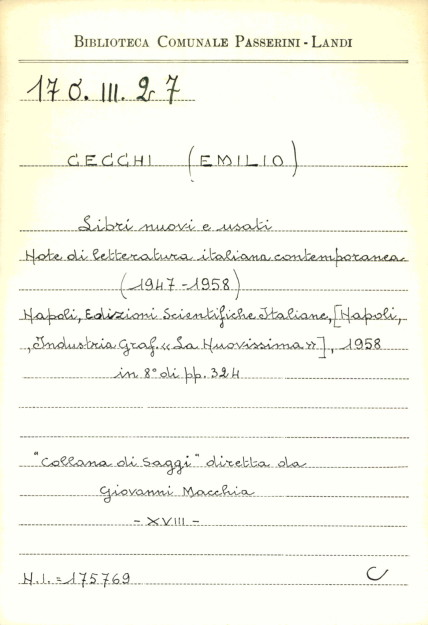 BIBLIOTECA COMUNALE PASSERINI-LANDI
17 O. III. 27
CECCHI (EMILIO)
Libri nuovi e usati
Note di letteratura italiana contemporanea
(1947-1958)
Napoli, Edizioni Scientifiche Italiane, [Napoli,
Industria Graf. «La Nuovissima»], 1958
in 8° di pp. 324
"Collana di Saggi" diretta da
Giovanni Macchia
- XVIII -
N.I. = 175769 C